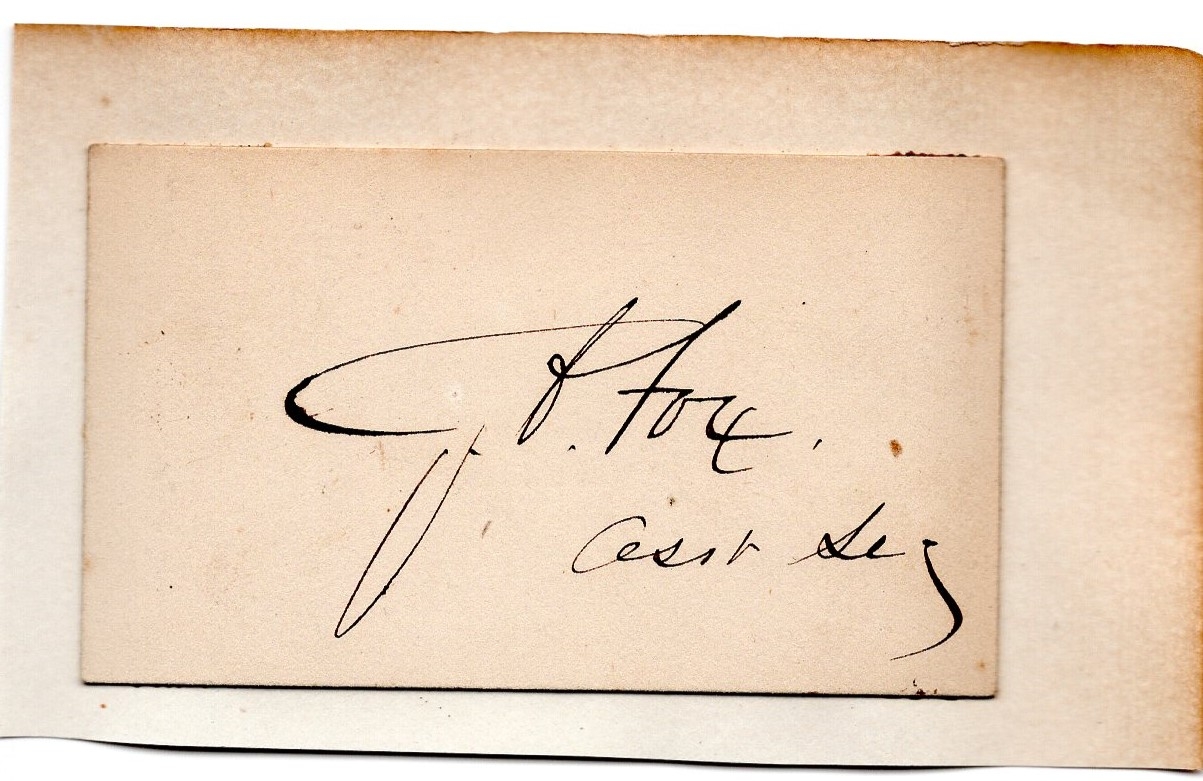 G. V. Fox.
Asst Secy